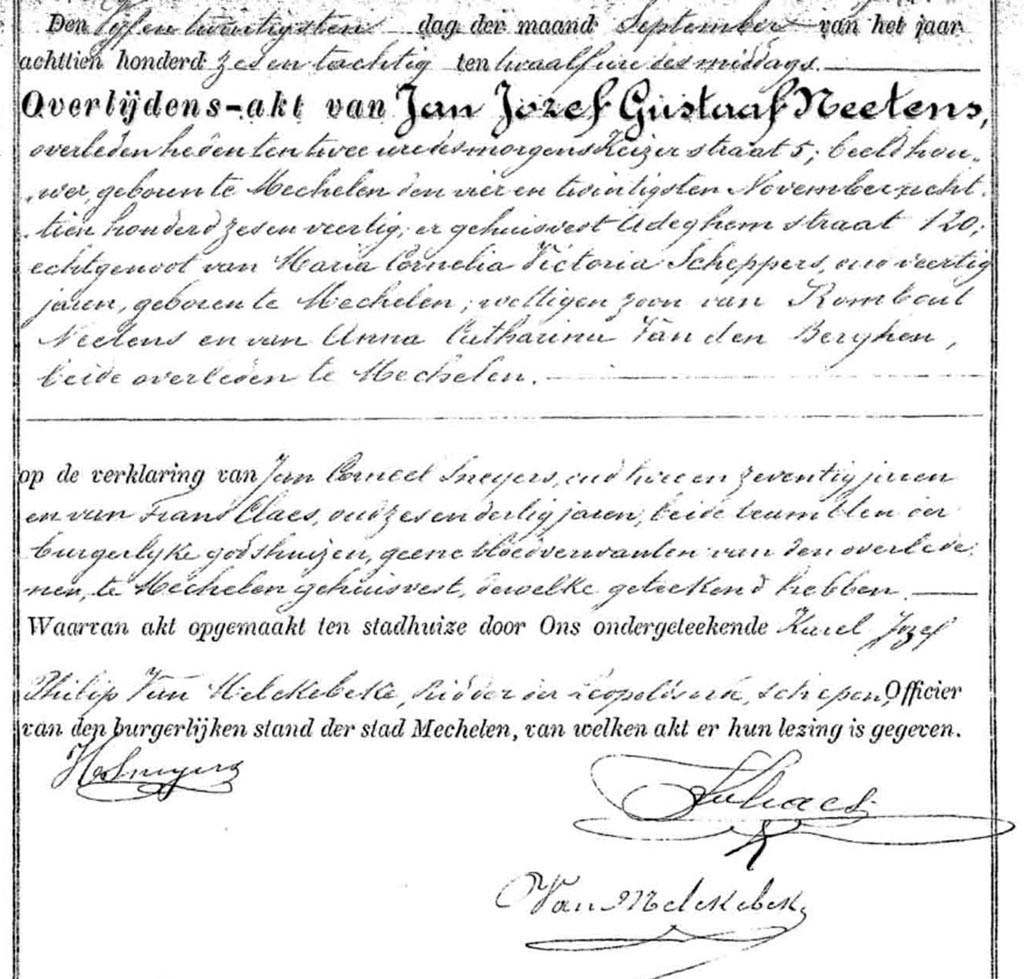 Den Vyf en twintigsten dag der maand September van het jaar
achttien honderd zes en tachtig ten twaalf ure des middags.
Overlijdens-akt van Jan Jozef Gustaaf Neetens,
overleden heden ten twee ure des morgens Keizerstraat 5; beeldhou-
wer, geboren te Mechelen den vier en twintigsten November acht-
tien honderd zes en veertig; er gehuisvest Adeghem straat 120;
echtgenoot van Maria Cornelia Victoria Scheppers, oud veertig
jaren, geboren te Mechelen; wettigen zoon van Rombout
Neetens en van Anna Catharina Van den Berghen,
beide overleden te Mechelen.
op de verklaring van Jan Corneel Sneyers, oud twee en zeventig jaren
en van Frans Claes, oud zes en dertig jaren, beide beambten der
burgerlyke godshuizen, geene bloedverwanten van den overlede-
nen, te Mechelen gehuisvest, dewelke geteekend hebben.
Waarvan akt opgemaakt ten stadhuize door Ons ondergeteekende Karel Jozef
Philip Van Melckebeke, Ridder der Leopoldsorde, Schepen, Officier
van den burgerlijken stand der stad Mechelen, van welken akt er hun lezing is gegeven.
Sneyers
Claes
Van Melckebeke